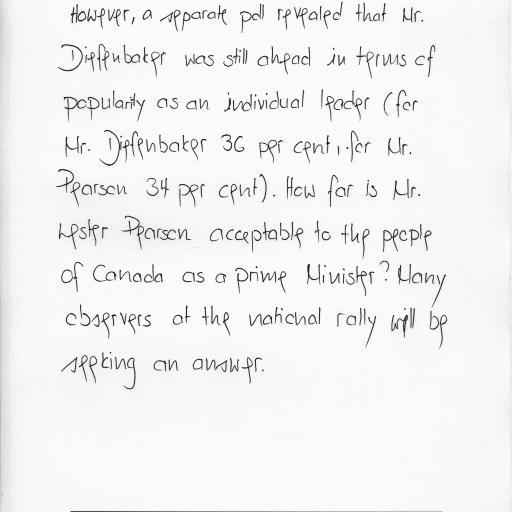 However, a separate poll revealed that Mr.
Dieffenbaker was still ahead in terms of
popularity as an individual leader (for
Mr. Dieffenbaker 36 per cent, for Mr.
Pearson 34 per cent). How far is Mr.
Lester Pearson acceptable to the people
of Canada as a prime Minister? Many
observers at the national rally will be
seeking an answer.